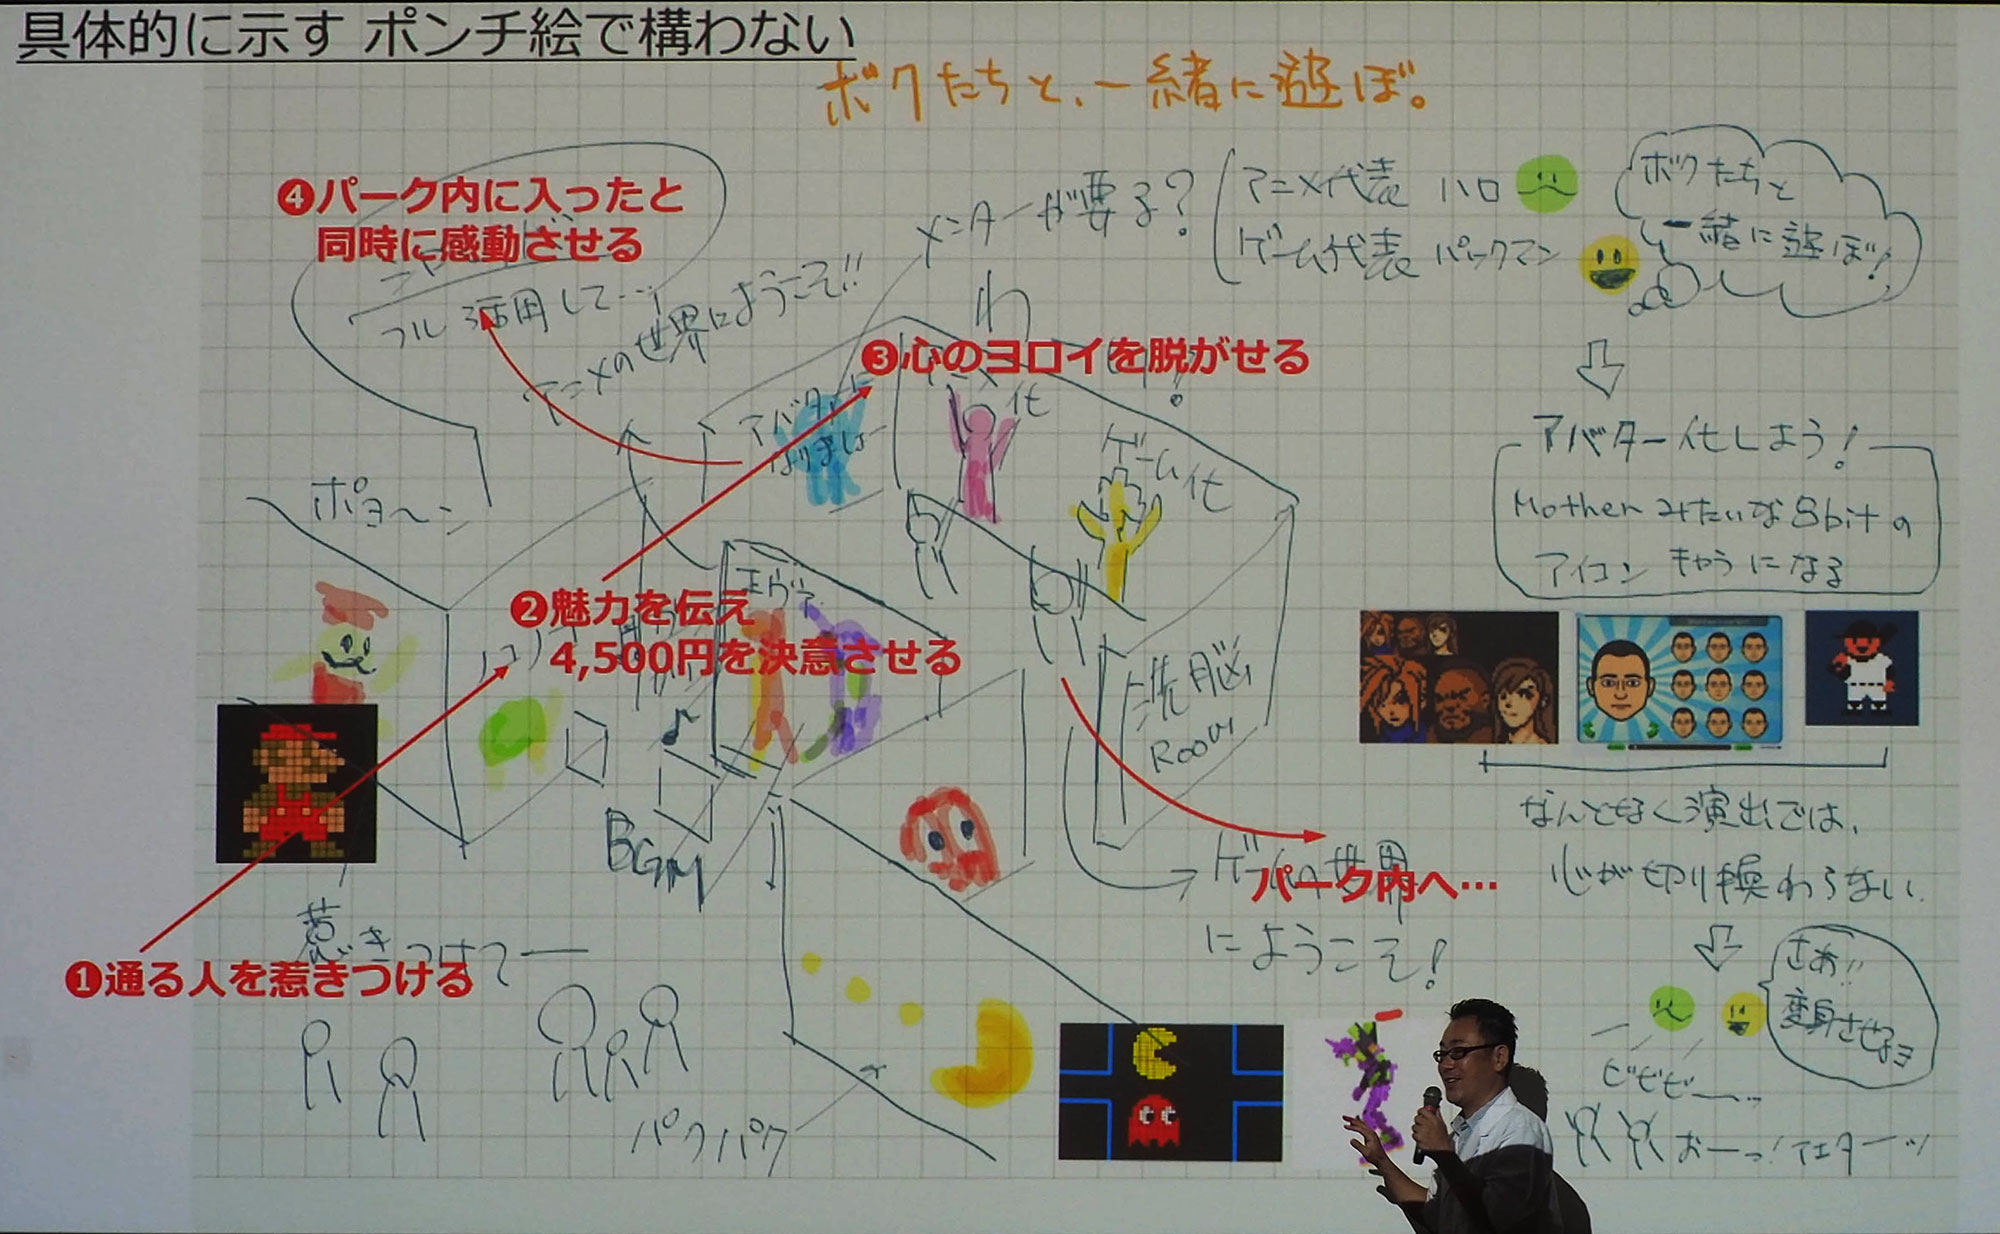 具体的に示す ポンチ絵で構わない
ボクたちと、一緒に遊ぼ。
❹パーク内に入ったと
同時に感動させる
フル活用して…
アニメの世界にようこそ!!
メンターが要る?
アニメ代表 ハロ
ゲーム代表 パックマン
ボクたちと
一緒に遊ぼ!
❸心のヨロイを脱がせる
アバターに
なりましょー
ゲーム化
アバター化しよう!
Motherみたいな8bitの
アイコン きゃらになる
ポヨ〜ン
エヴァ
❷魅力を伝え
4,500円を決意させる
洗脳
Room
BGM
なんとなく演出では、
心が切り換わらない.
パーク内へ…
ゲームの世界
にようこそ!
惹きつけてー
❶通る人を惹きつける
パクパク
さあ!!
変身させるヨ
ビビビー…
おーっ!